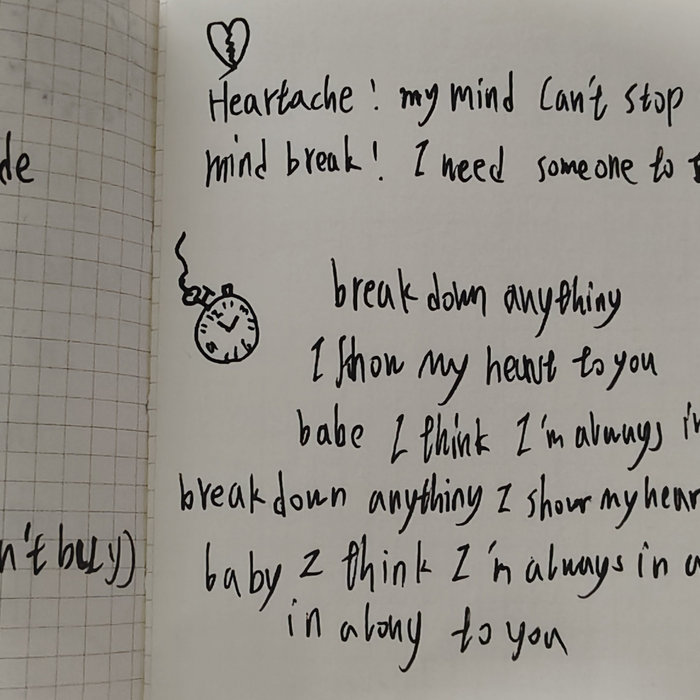 de
n't buy)
Heartache! my mind can't stop
mind break! I need someone to
break down anything
I show my heart to you
babe I think I'm always in
break down anything I show my hear
baby I think I'm always in a
in alony to you